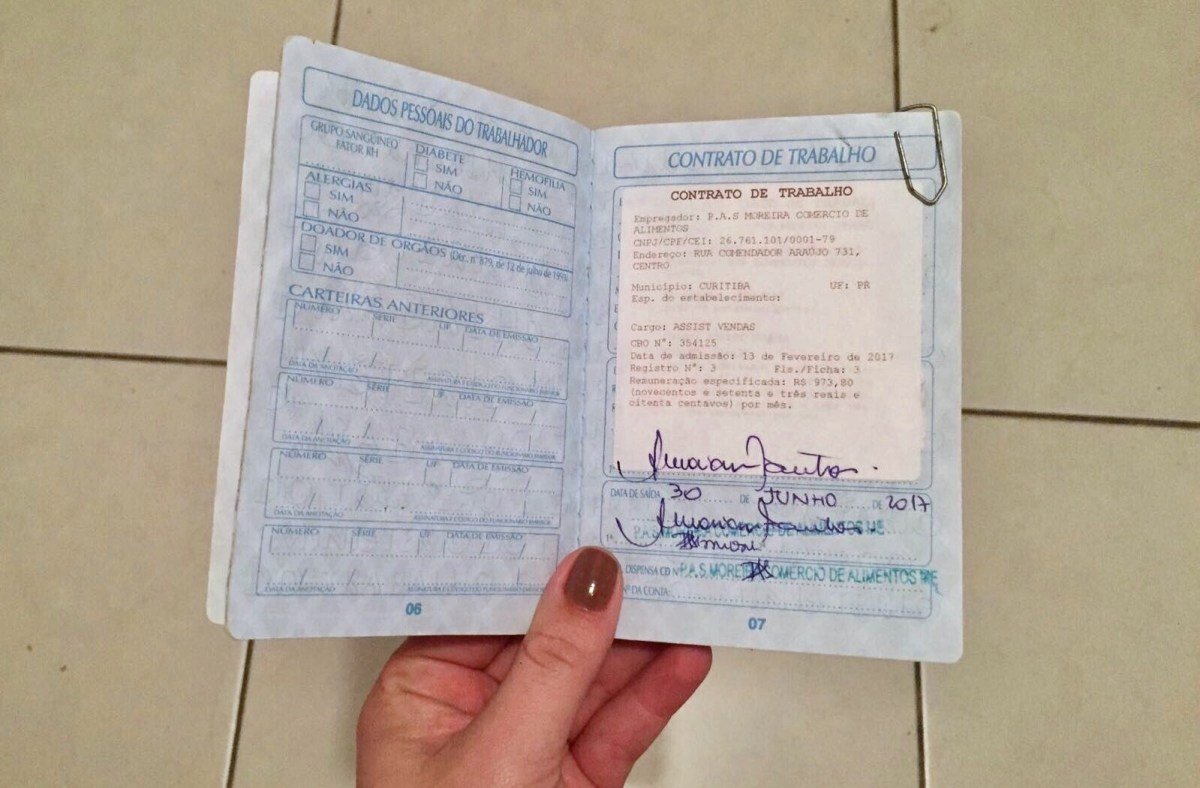 DADOS PESSOAIS DO TRABALHADOR
GRUPO SANGÜÍNEO
FATOR RH
DIABETE
SIM
NÃO
HEMOFILIA
SIM
NÃO
ALERGIAS
SIM
NÃO
DOADOR DE ÓRGÃOS (Dec. nº 879, de 12 de julho de 1993)
SIM
NÃO
CARTEIRAS ANTERIORES
NÚMERO SÉRIE UF DATA DE EMISSÃO
DATA DA ANOTAÇÃO ASSINATURA E CÓDIGO DO FUNCIONÁRIO EMISSOR
NÚMERO SÉRIE UF DATA DE EMISSÃO
DATA DA ANOTAÇÃO ASSINATURA E CÓDIGO DO FUNCIONÁRIO EMISSOR
NÚMERO SÉRIE UF DATA DE EMISSÃO
DATA DA ANOTAÇÃO ASSINATURA E CÓDIGO DO FUNCIONÁRIO EMISSOR
NÚMERO SÉRIE UF DATA DE EMISSÃO
DATA DA ANOTAÇÃO ASSINATURA E CÓDIGO DO FUNCIONÁRIO EMISSOR
06
CONTRATO DE TRABALHO
CONTRATO DE TRABALHO
Empregador: P.A.S MOREIRA COMERCIO DE
ALIMENTOS
CNPJ/CPF/CEI: 26.761.101/0001-79
Endereço: RUA COMENDADOR ARAÚJO 731,
CENTRO
Município: CURITIBA UF: PR
Esp. do estabelecimento:
Cargo: ASSIST VENDAS
CBO Nº: 354125
Data de admissão: 13 de Fevereiro de 2017
Registro Nº: 3 Fls./Ficha: 3
Remuneração especificada: R$ 973,80
(novecentos e setenta e três reais e
oitenta centavos) por mês.
DATA DE SAÍDA 30 DE JUNHO DE 2017
P.A.S MOREIRA COMERCIO DE ALIMENTOS ME
DISPENSA CD Nº P.A.S MOREIRA COMERCIO DE ALIMENTOS ME
Nº DA CONTA:
07